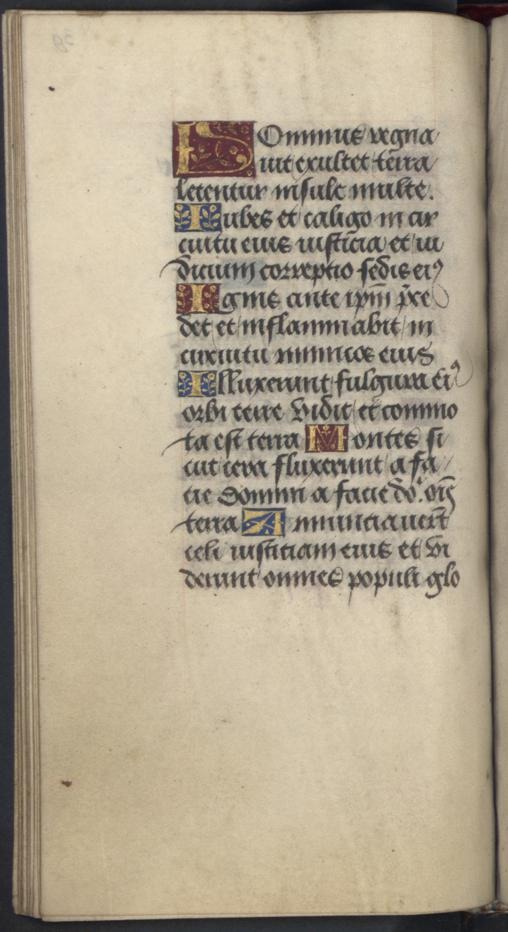 Dominus regna
uit exultet terra
letentur insule multe.
Nubes et caligo in cir
cuitu eius iusticia et iu
dicium correptio sedis ei⁹
Ignis ante ip̄m p̄ce
det et inflammabit in
circuitu inimicos eius
Illuxerunt fulgura ei⁹
orbi terre vidit et commo
ta est terra Montes si
cut cera fluxerunt a fa
cie Domini a facie dn̄i oīs
terra Annunciauerūt
celi iusticiam eius et vi
derunt omnes populi glo